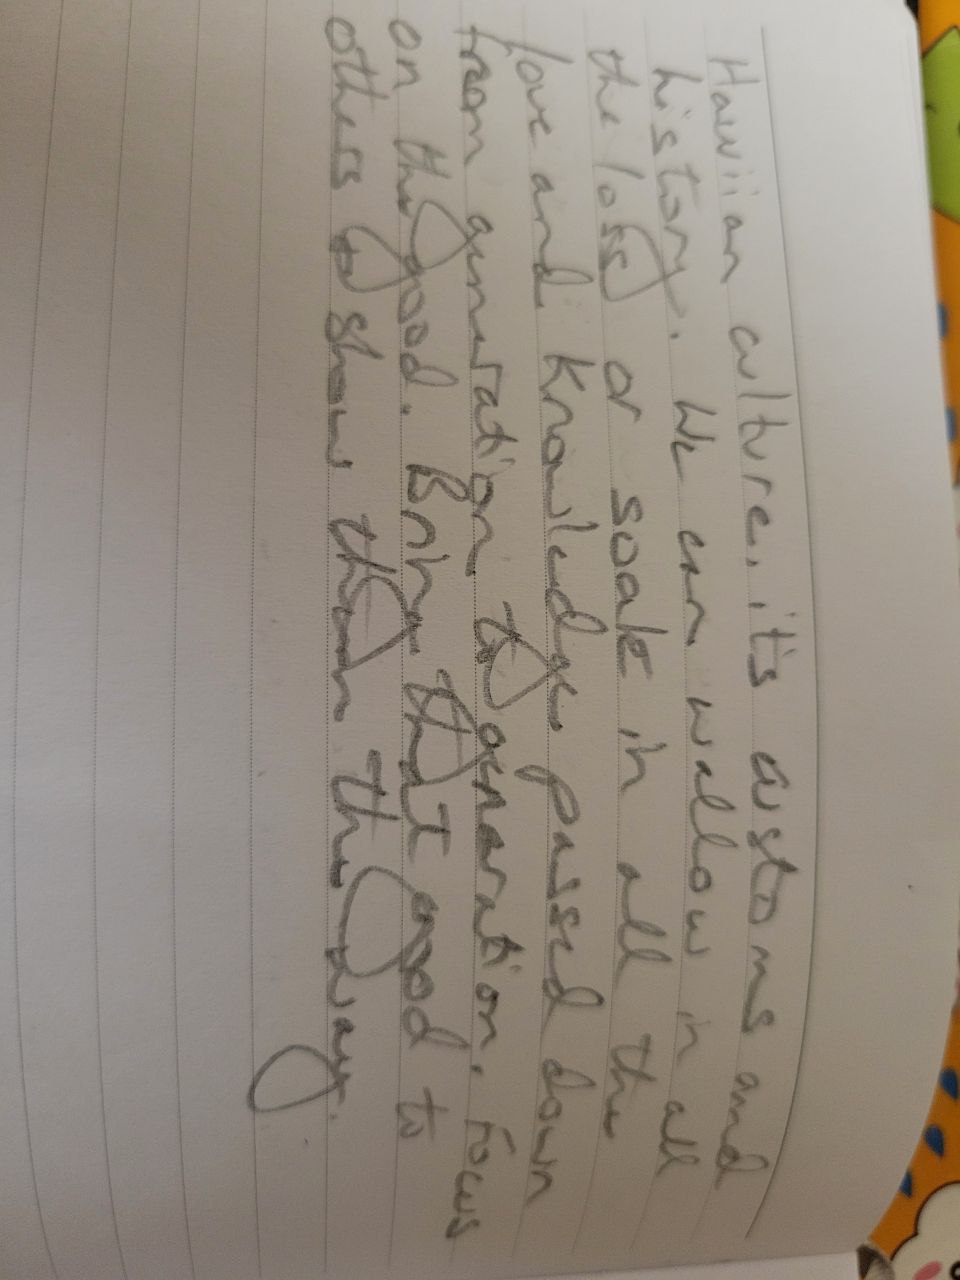 Hawiian culture, it's customs and
history. We can wallow in all
the loss or soak in all the
love and knowledge passed down
from generation to genaration. Focus
on the good. Bring that good to
others to show them the way.